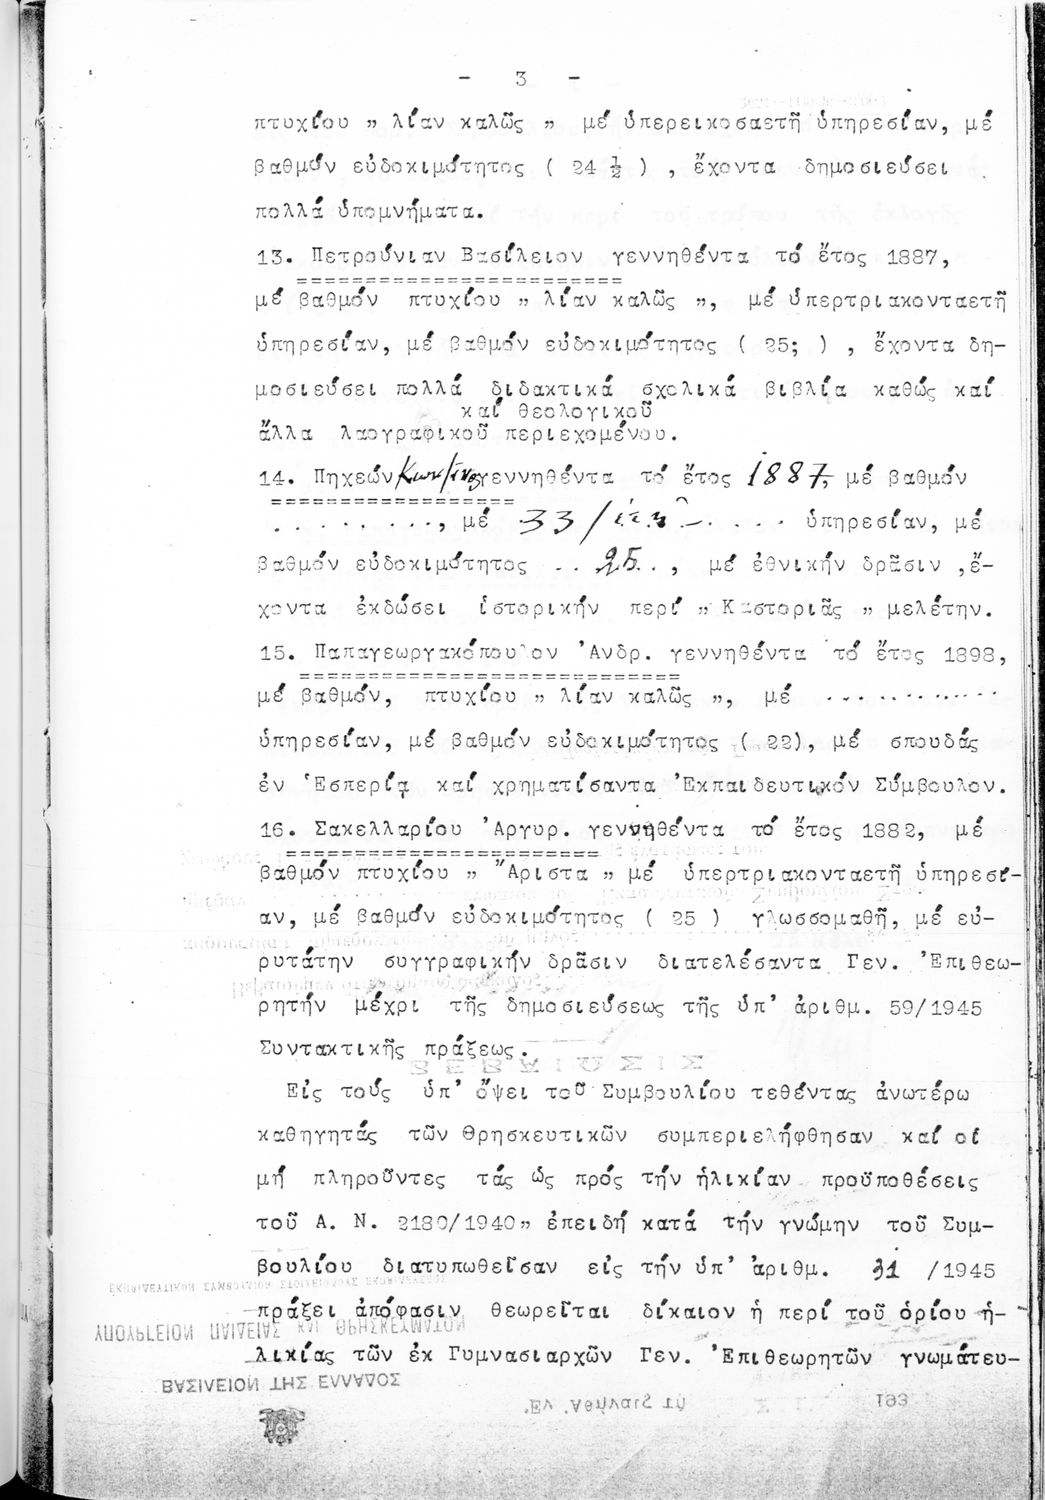 - 3 -
πτυχίου " λίαν καλῶς " μέ ὑπερεικοσαετῆ ὑπηρεσίαν, μέ
βαθμόν εὐδοκιμότητος ( 24 ½ ) , ἔχοντα δημοσιεύσει
πολλά ὑπομνήματα.
13. Πετρούνιαν Βασίλειον γεννηθέντα τό ἔτος 1887,
μέ βαθμόν πτυχίου " λίαν καλῶς ", μέ ὑπερτριακονταετῆ
ὑπηρεσίαν, μέ βαθμόν εὐδοκιμότητος ( 25; ) , ἔχοντα δη-
μοσιεύσει πολλά διδακτικά σχολικά βιβλία καθώς καί
καί θεολογικοῦ
ἄλλα λαογραφικοῦ περιεχομένου.
14. Πηχεών Κων/ῖνον γεννηθέντα τό ἔτος 1887, μέ βαθμόν
. . . . . . . ., μέ 33/ . . . . ὑπηρεσίαν, μέ
βαθμόν εὐδοκιμότητος . . 25 . . , μέ ἐθνικήν δρᾶσιν ,ἔ-
χοντα ἐκδώσει ἱστορικήν περί " Καστοριᾶς " μελέτην.
15. Παπαγεωργακόπουλον Ἀνδρ. γεννηθέντα τό ἔτος 1898,
μέ βαθμόν, πτυχίου " λίαν καλῶς ", μέ . . . . . . . . . . . .
ὑπηρεσίαν, μέ βαθμόν εὐδοκιμότητος ( 22), μέ σπουδάς
ἐν Ἑσπερίᾳ καί χρηματίσαντα Ἐκπαιδευτικόν Σύμβουλον.
16. Σακελλαρίου Ἀργυρ. γεννηθέντα τό ἔτος 1882, μέ
βαθμόν πτυχίου " Ἄριστα " μέ ὑπερτριακονταετῆ ὑπηρεσί-
αν, μέ βαθμόν εὐδοκιμότητος ( 25 ) γλωσσομαθῆ, μέ εὐ-
ρυτάτην συγγραφικήν δρᾶσιν διατελέσαντα Γεν. Ἐπιθεω-
ρητήν μέχρι τῆς δημοσιεύσεως τῆς ὑπ' ἀριθμ. 59/1945
Συντακτικῆς πράξεως.
Εἰς τούς ὑπ' ὄψει τοῦ Συμβουλίου τεθέντας ἀνωτέρω
καθηγητάς τῶν Θρησκευτικῶν συμπεριελήφθησαν καί οἱ
μή πληροῦντες τάς ὡς πρός τήν ἡλικίαν προϋποθέσεις
τοῦ Α. Ν. 2180/1940" ἐπειδή κατά τήν γνώμην τοῦ Συμ-
βουλίου διατυπωθεῖσαν εἰς τήν ὑπ' ἀριθμ. 31 /1945
πράξει ἀπόφασιν θεωρεῖται δίκαιον ἡ περί τοῦ ὁρίου ἡ-
λικίας τῶν ἐκ Γυμνασιαρχῶν Γεν. Ἐπιθεωρητῶν γνωμάτευ-